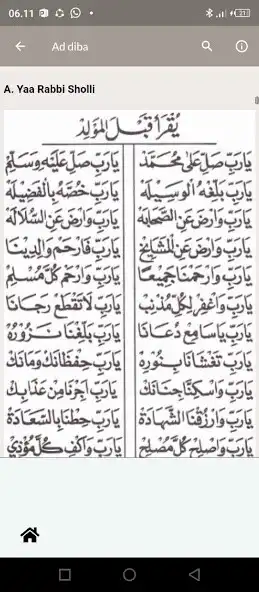 06.11
Ad diba
A. Yaa Rabbi Sholli
يُقْرَأُ قَبْلَ الْمَوْلِدِ
يَارَبِّ صَلِّ عَلَى مُحَمَّدْ يَارَبِّ صَلِّ عَلَيْهِ وَسَلِّمْ
يَارَبِّ بَلِّغْهُ الْوَسِيْلَةْ يَارَبِّ خُصَّهُ بِالْفَضِيْلَةْ
يَارَبِّ وَارْضَ عَنِ الصَّحَابَةْ يَارَبِّ وَارْضَ عَنِ السُّلَالَةْ
يَارَبِّ وَارْضَ عَنِ الْمَشَايِخْ يَارَبِّ فَارْحَمْ وَالِدِيْنَا
يَارَبِّ وَارْحَمْنَا جَمِيْعًا يَارَبِّ وَارْحَمْ كُلَّ مُسْلِمْ
يَارَبِّ وَاغْفِرْ لِكُلِّ مُذْنِبْ يَارَبِّ لَاتَقْطَعْ رَجَانَا
يَارَبِّ يَاسَامِعْ دُعَانَا يَارَبِّ بَلِّغْنَا نَزُوْرُهْ
يَارَبِّ تَغْشَانَا بِنُوْرِهْ يَارَبِّ حِفْظَانَكْ وَمَانَكْ
يَارَبِّ وَاسْكِنَّا جِنَانَكْ يَارَبِّ اَجِرْنَا مِنْ عَذَابِكْ
يَارَبِّ وَارْزُقْنَا الشَّهَادَةْ يَارَبِّ حِطْنَا بِالسَّعَادَةْ
يَارَبِّ وَاصْلِحْ كُلَّ مُصْلِحْ يَارَبِّ وَاكْفِ كُلَّ مُؤْذِيْ